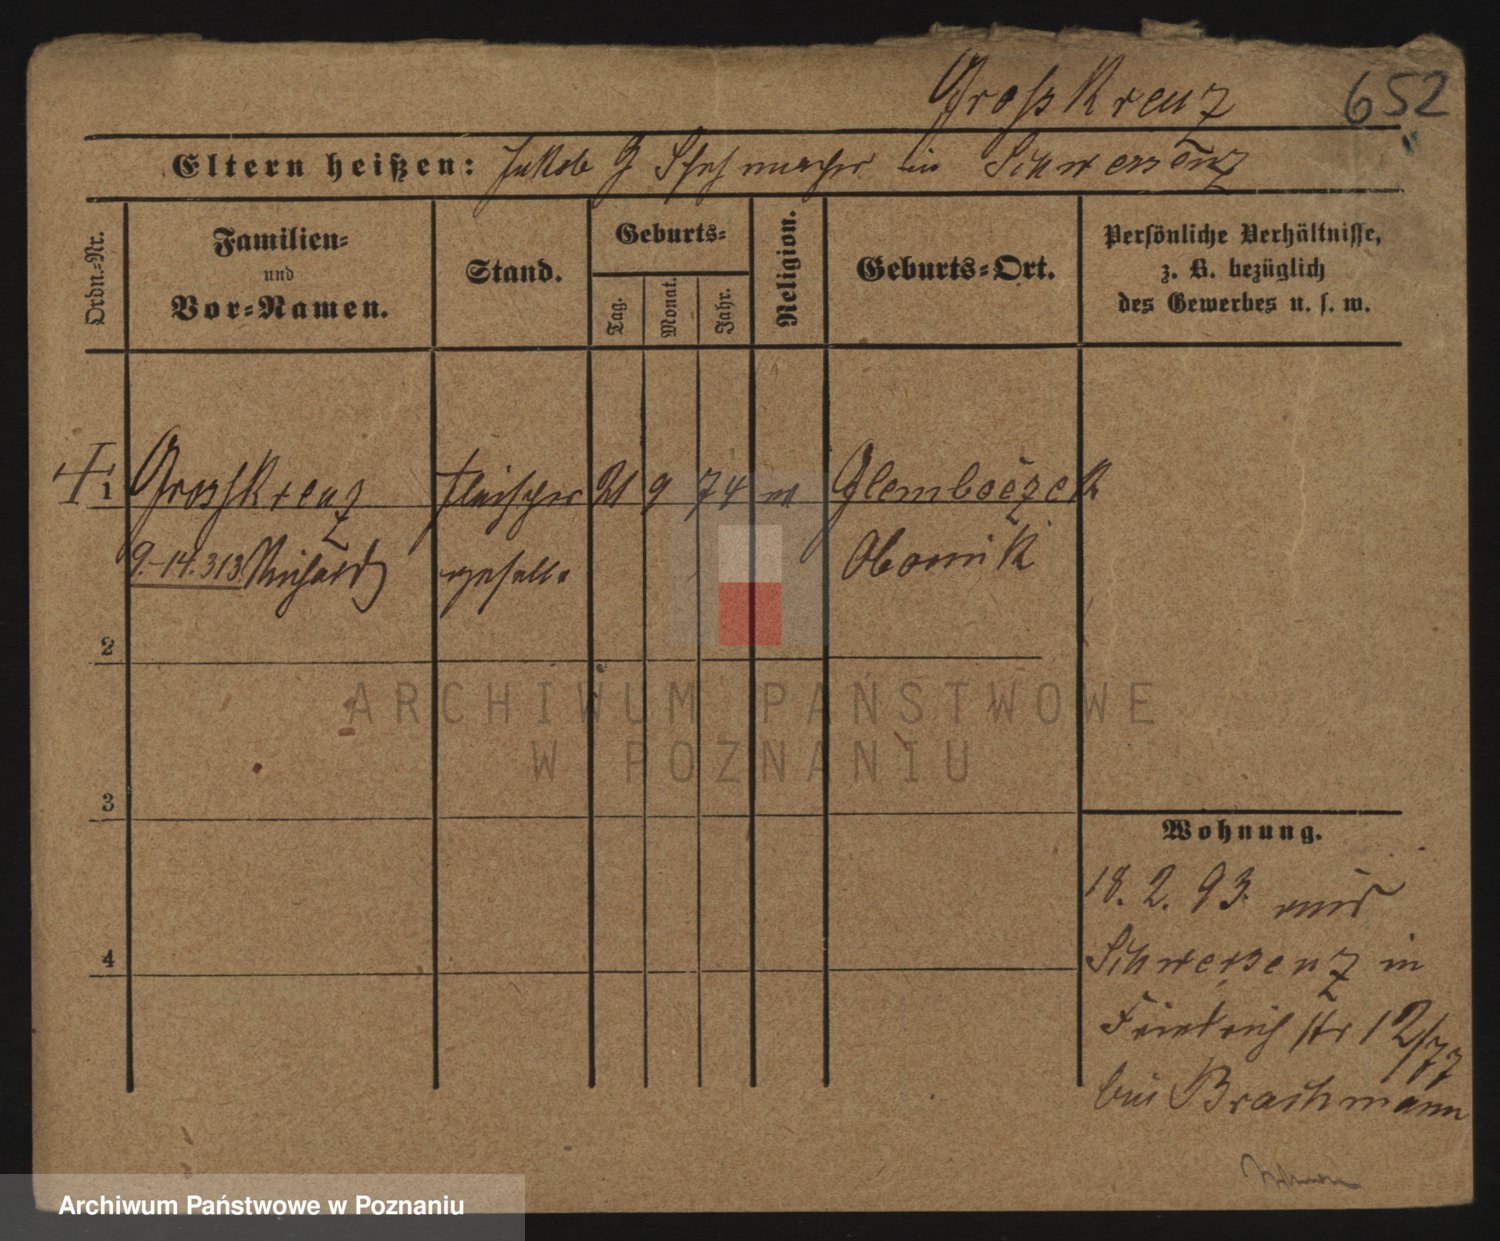 Großkreuz 652
Eltern heißen: Jakob G Schuhmacher in Schwersenz
Ordn.-Nr. Familien- und Vor-Namen. Stand. Geburts- Tag. Monat. Jahr. Religion. Geburts-Ort. Persönliche Verhältnisse, z. B. bezüglich des Gewerbes u. s. w.
1 Grosskreuz Fleischer 21 9 74 Glemboczek
9.-14.313 Richard geselle Obornik
2
3
4
Wohnung.
18. 2. 93. aus
Schwersenz in
Friedrichstr 12/77
bei Brachmann
ARCHIWUM PAŃSTWOWE
W POZNANIU
Archiwum Państwowe w Poznaniu